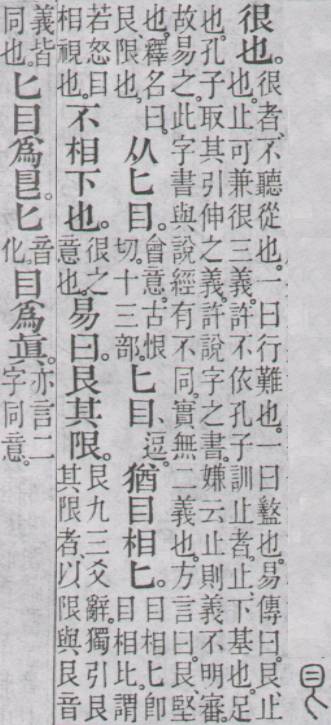 很也。
很者、不聽從也。一曰行難也。一曰盭也。易傳曰。艮、止
也。止可兼很三義。許不依孔子訓止者、止、下基也。足
也。孔子取其引伸之義。許說字之書。嫌云止則義不明審。
故易之。此字書與說經有不同。實無二義也。方言曰。艮、堅
也。釋名曰。
艮、限也。
从匕目。
會意。古恨
切。十三部。
匕目、
逗。
猶目相匕。
目相匕卽
目相比。謂
若怒目
相視也。
不相下也。
很之
意也。
易曰。艮其限。
艮九三爻辭。獨引艮
其限者、以限與艮音
義皆
同也。
匕目爲𥃩。匕
音
化。
目爲眞。
亦言二
字同意。